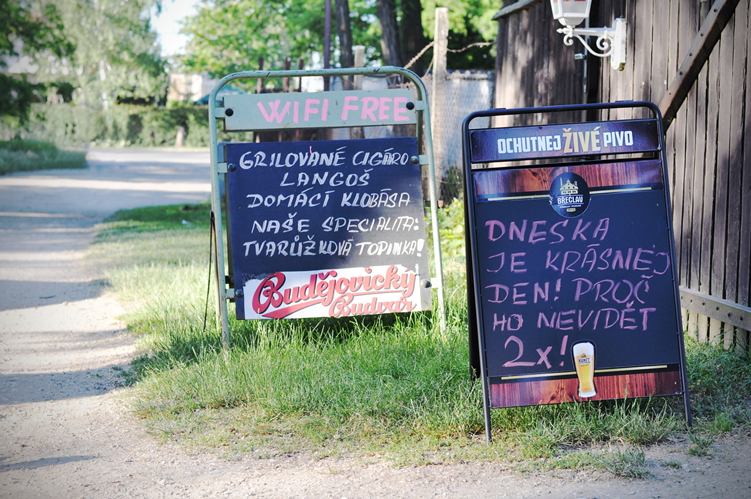 WIFI FREE
GRILOVANÉ CIGÁRO
LANGOŠ
DOMÁCÍ KLOBÁSA
NAŠE SPECIALITA:
TVARŮŽKOVÁ TOPINKA!
Budějovický
Budvar
OCHUTNEJ ŽIVÉ PIVO
BŘECLAV
DNESKA
JE KRÁSNEJ
DEN! PROČ
HO NEVIDĚT
2x!